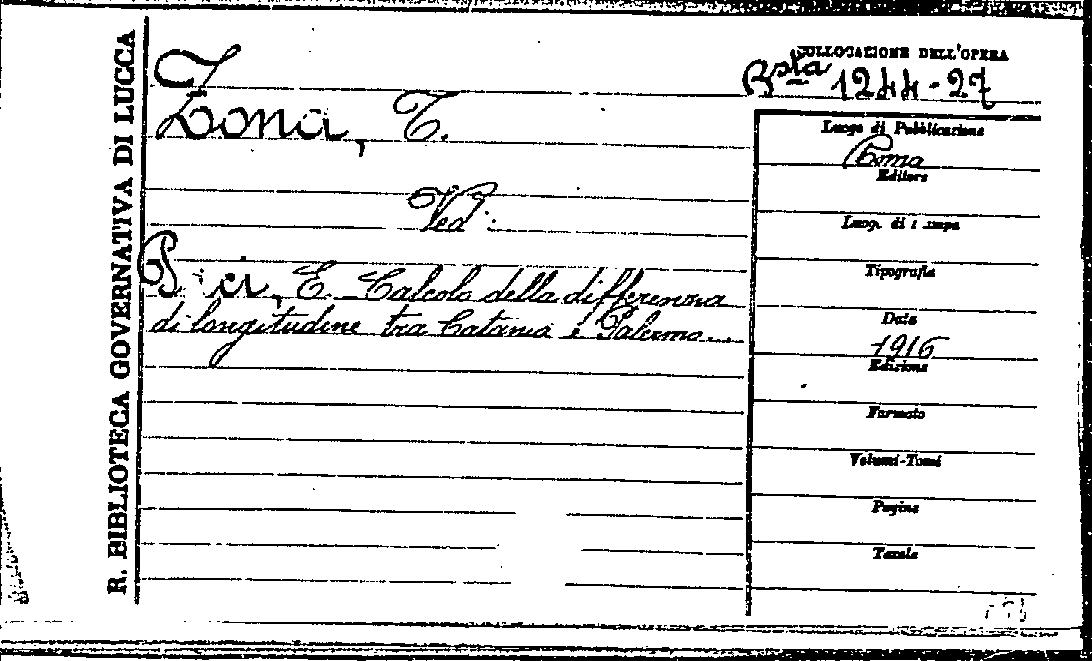 R. BIBLIOTECA GOVERNATIVA DI LUCCA
COLLOCAZIONE DELL'OPERA
Bsta 1244-27
Zona, T.
Ved:
E. Calcolo della differenza
di longitudine tra Catania e Palermo...
Luogo di Pubblicazione
Roma
Editore
Luog. di
Tipografia
Data
1916
Edizione
Formato
Volumi-Tomi
Pagine
Tavole